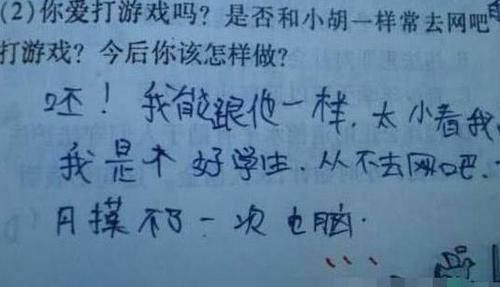 (2)你爱打游戏吗？是否和小胡一样常去网吧
打游戏？今后你该怎样做？
呸！我能跟他一样，太小看我，
我是个好学生，从不去网吧，
月摸不了一次电脑.